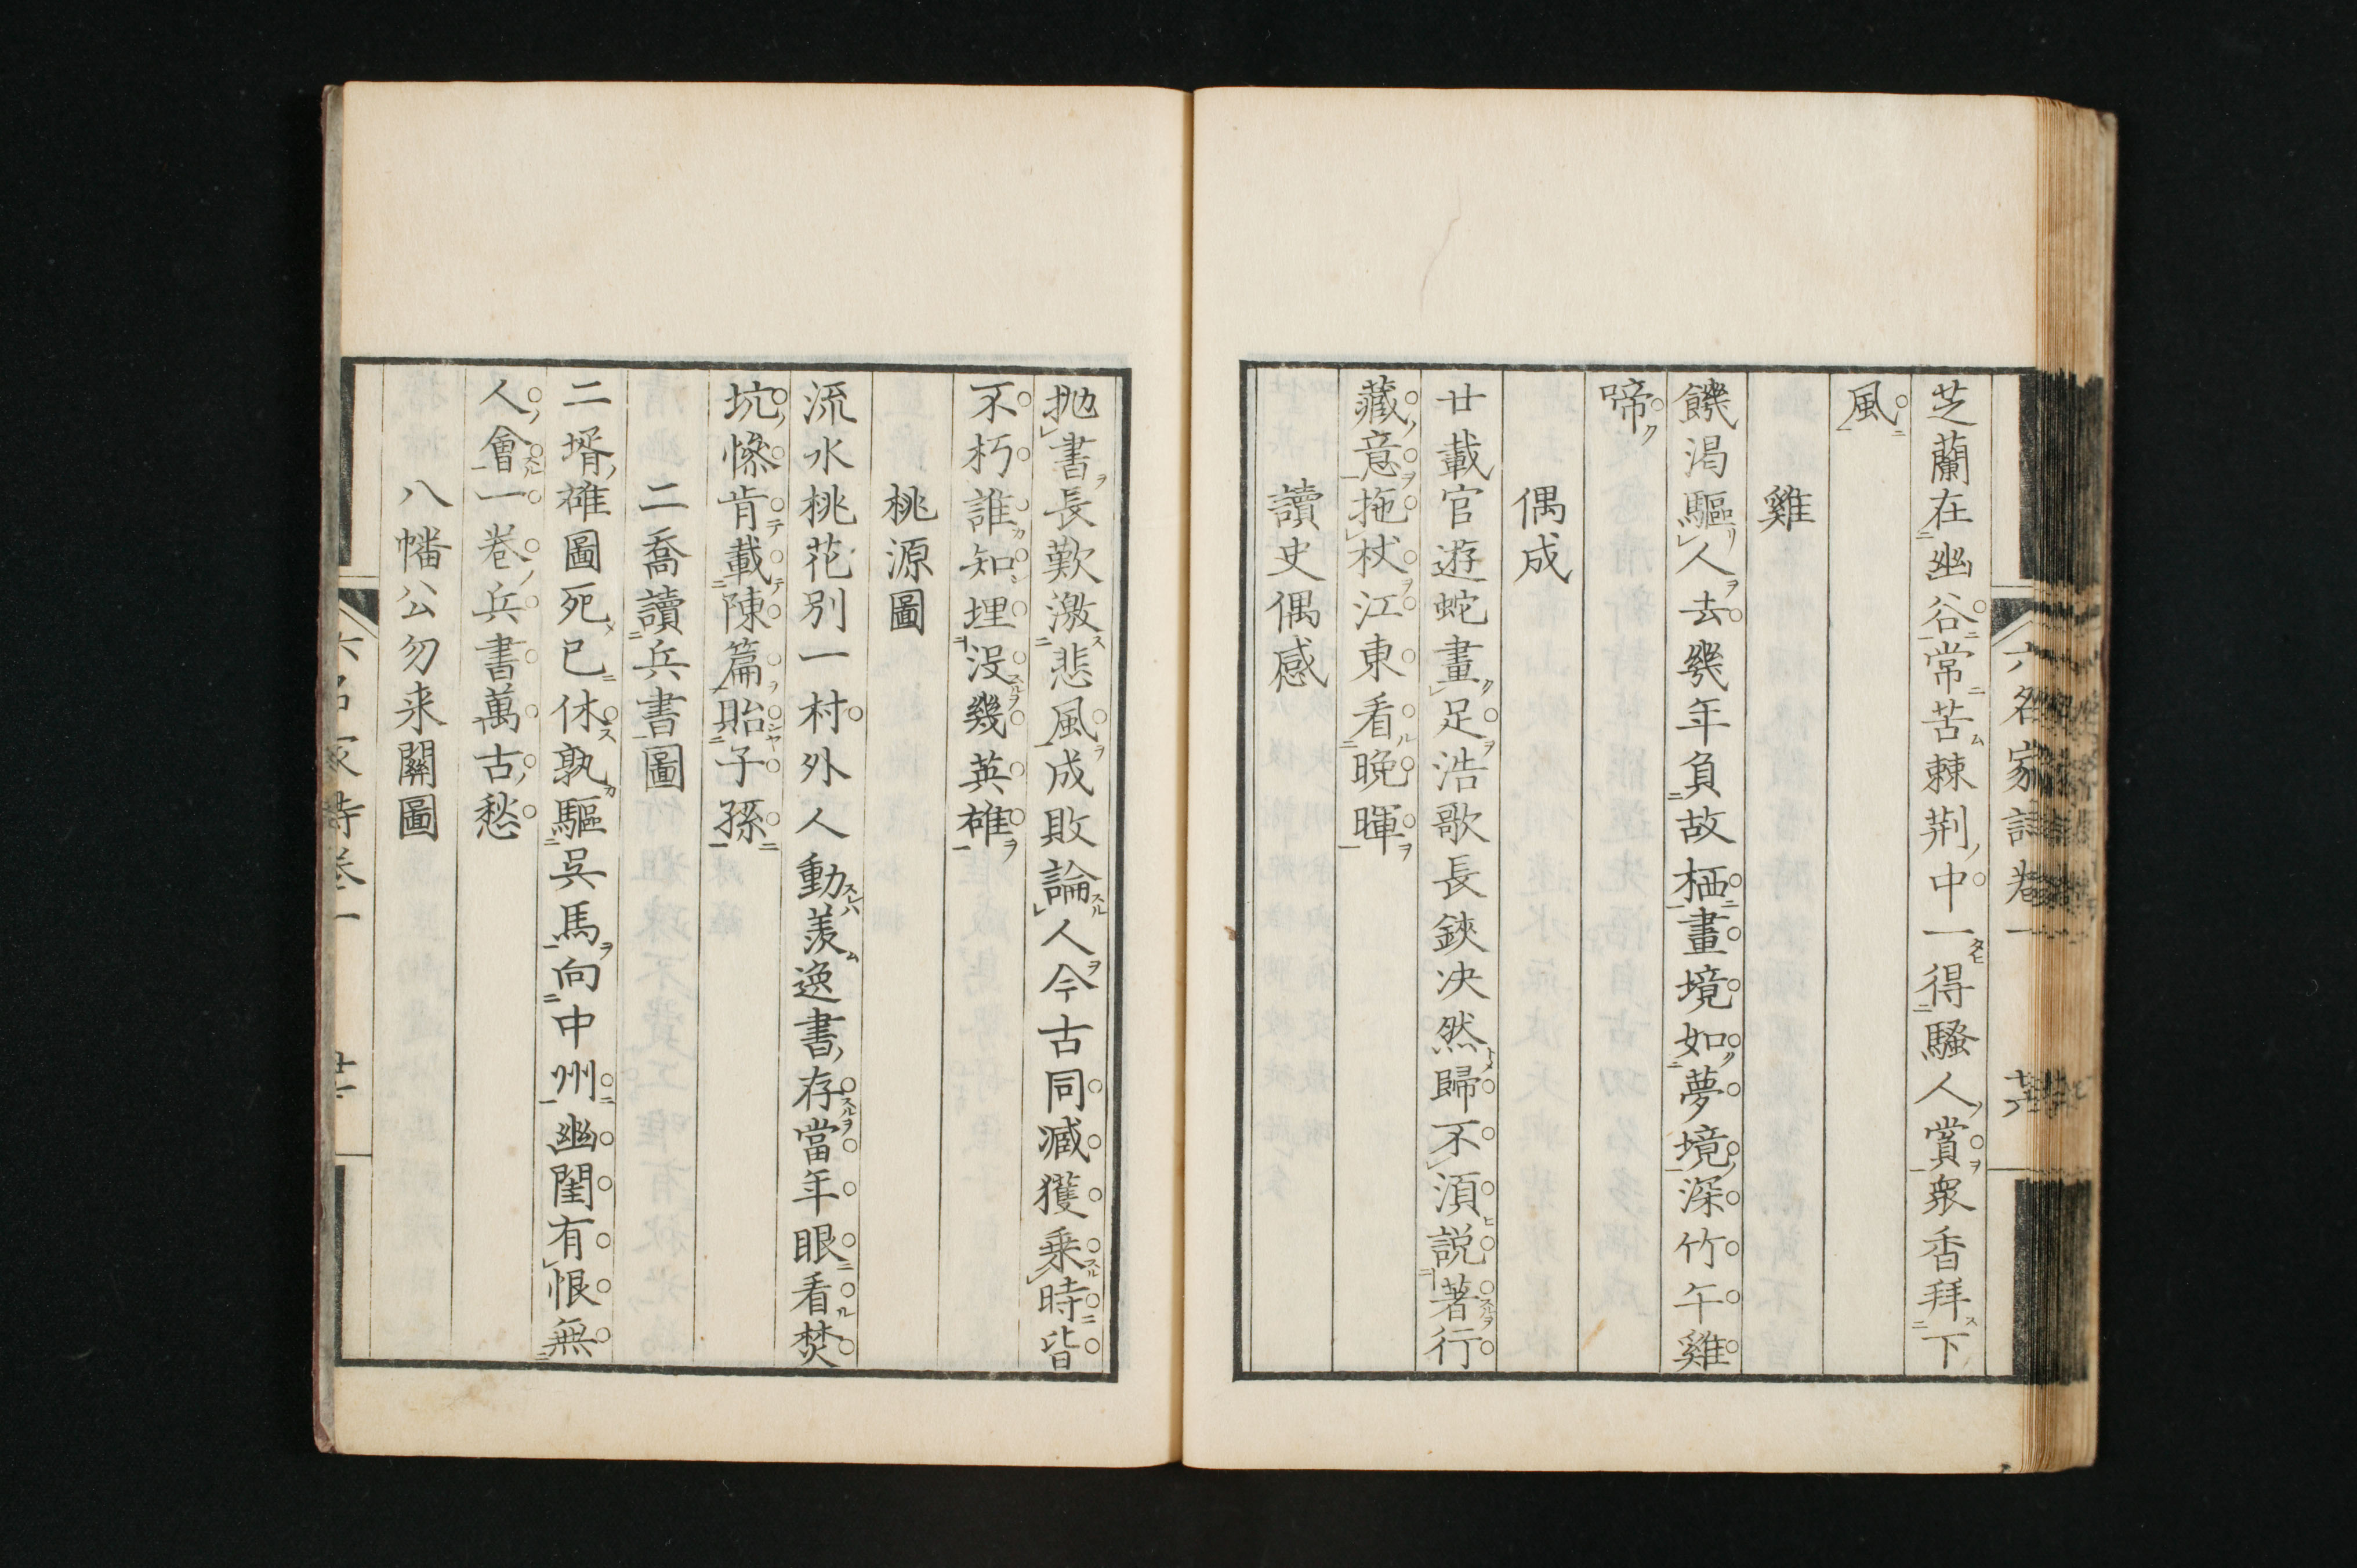 六名家詩卷一
芝蘭在幽谷常苦棘荆中一得騷人賞衆香拜下
風
雞
饑渴驅人去幾年負故栖畫境如夢境深竹午雞
啼
偶成
廿載官遊蛇畫足浩歌長鋏决然歸不須説著行
藏意拖杖江東看晚暉
讀史偶感
抛書長歎激悲風成敗論人今古同臧獲乗時皆
不朽誰知埋没幾英雄
桃源圖
流水桃花别一村外人動羨逸書存當年眼看焚
坑慘肯載陳篇貽子孫
二喬讀兵書圖
二壻雄圖死已休孰驅呉馬向中州幽閨有恨無
人會一卷兵書萬古愁
八幡公勿来關圖
六名家詩卷一